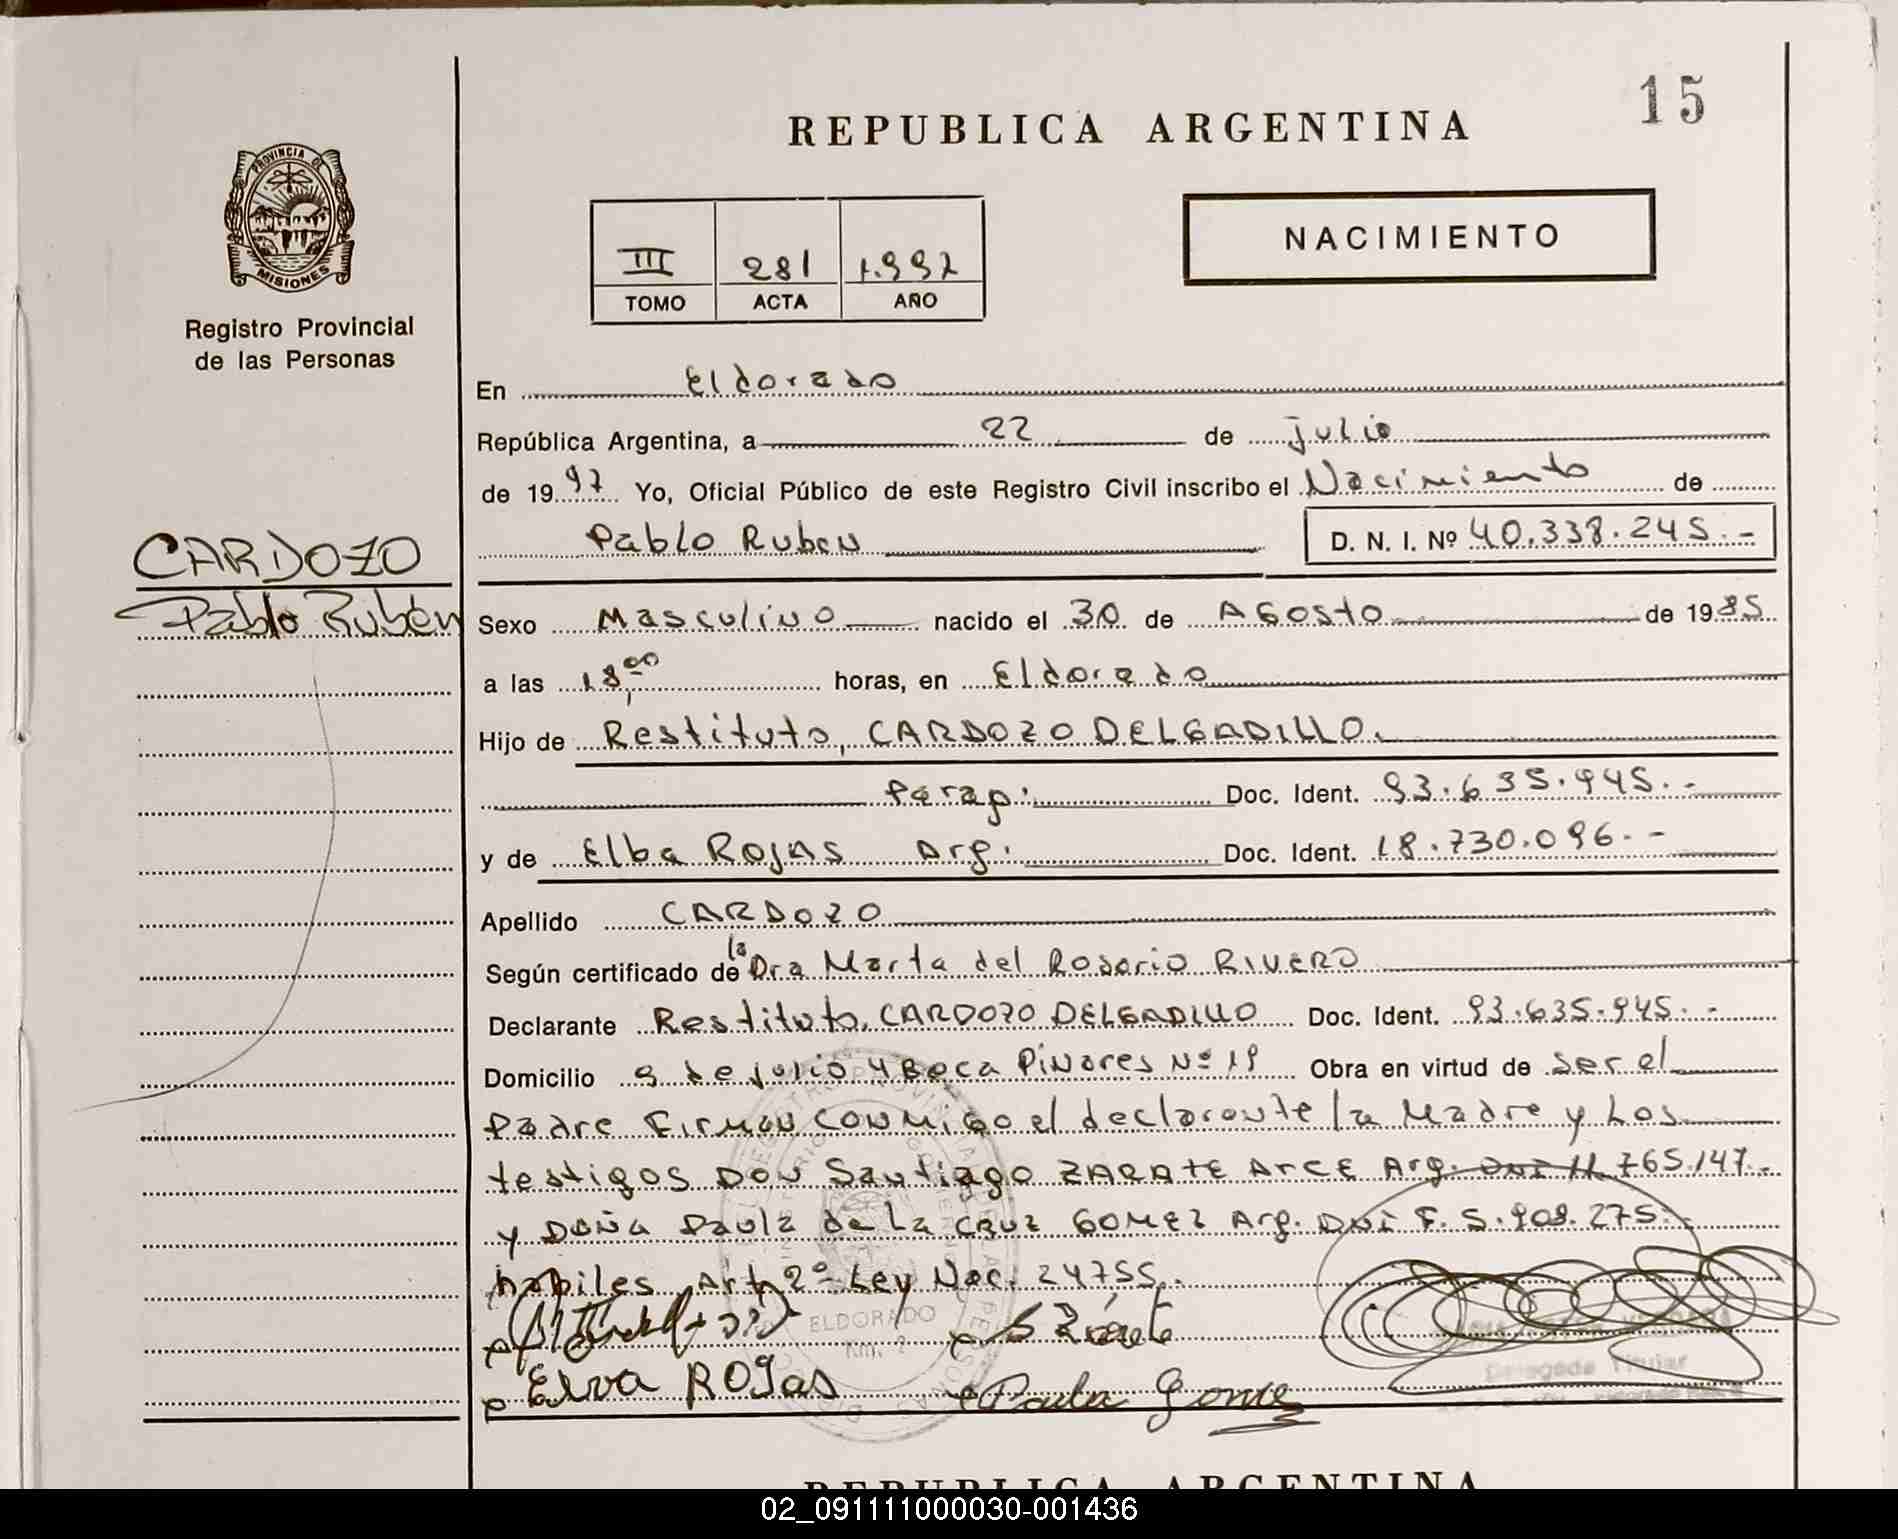 15
REPUBLICA ARGENTINA
PROVINCIA DE
MISIONES
Registro Provincial
de las Personas
III 281 1.997
TOMO ACTA AÑO
NACIMIENTO
En Eldorado
República Argentina, a 22 de julio
de 1997 Yo, Oficial Público de este Registro Civil inscribo el Nacimiento de
Pablo Ruben D. N. I. Nº 40.338.245.-
CARDOZO
Pablo Rubén
Sexo Masculino nacido el 30 de Agosto de 1985
a las 18,00 horas, en Eldorado
Hijo de Restituto, CARDOZO DELGADILLO.
Parag. Doc. Ident. 93.635.945.-
y de Elba Rojas Arg. Doc. Ident. 18.730.096.-
Apellido CARDOZO
Según certificado de la Dra Marta del Rosario RIVERO
Declarante Restituto, CARDOZO DELGADILLO Doc. Ident. 93.635.945.-
Domicilio 9 de julio y Beca Pinares Nº 19 Obra en virtud de ser el
Padre Firman conmigo el declarante la Madre y Los
testigos Don Santiago ZARATE ARCE Arg. DNI 11.765.147.-
y Doña Paula de La CRUZ GOMEZ Arg. DNI F. 5.908.275.-
habiles Art 2º Ley Nac. 24755.
S Zárate
ELDORADO
Km. 2
Delegada Titular
Elva ROJas Paula Gomez
REPUBLICA ARGENTINA
02_091111000030-001436